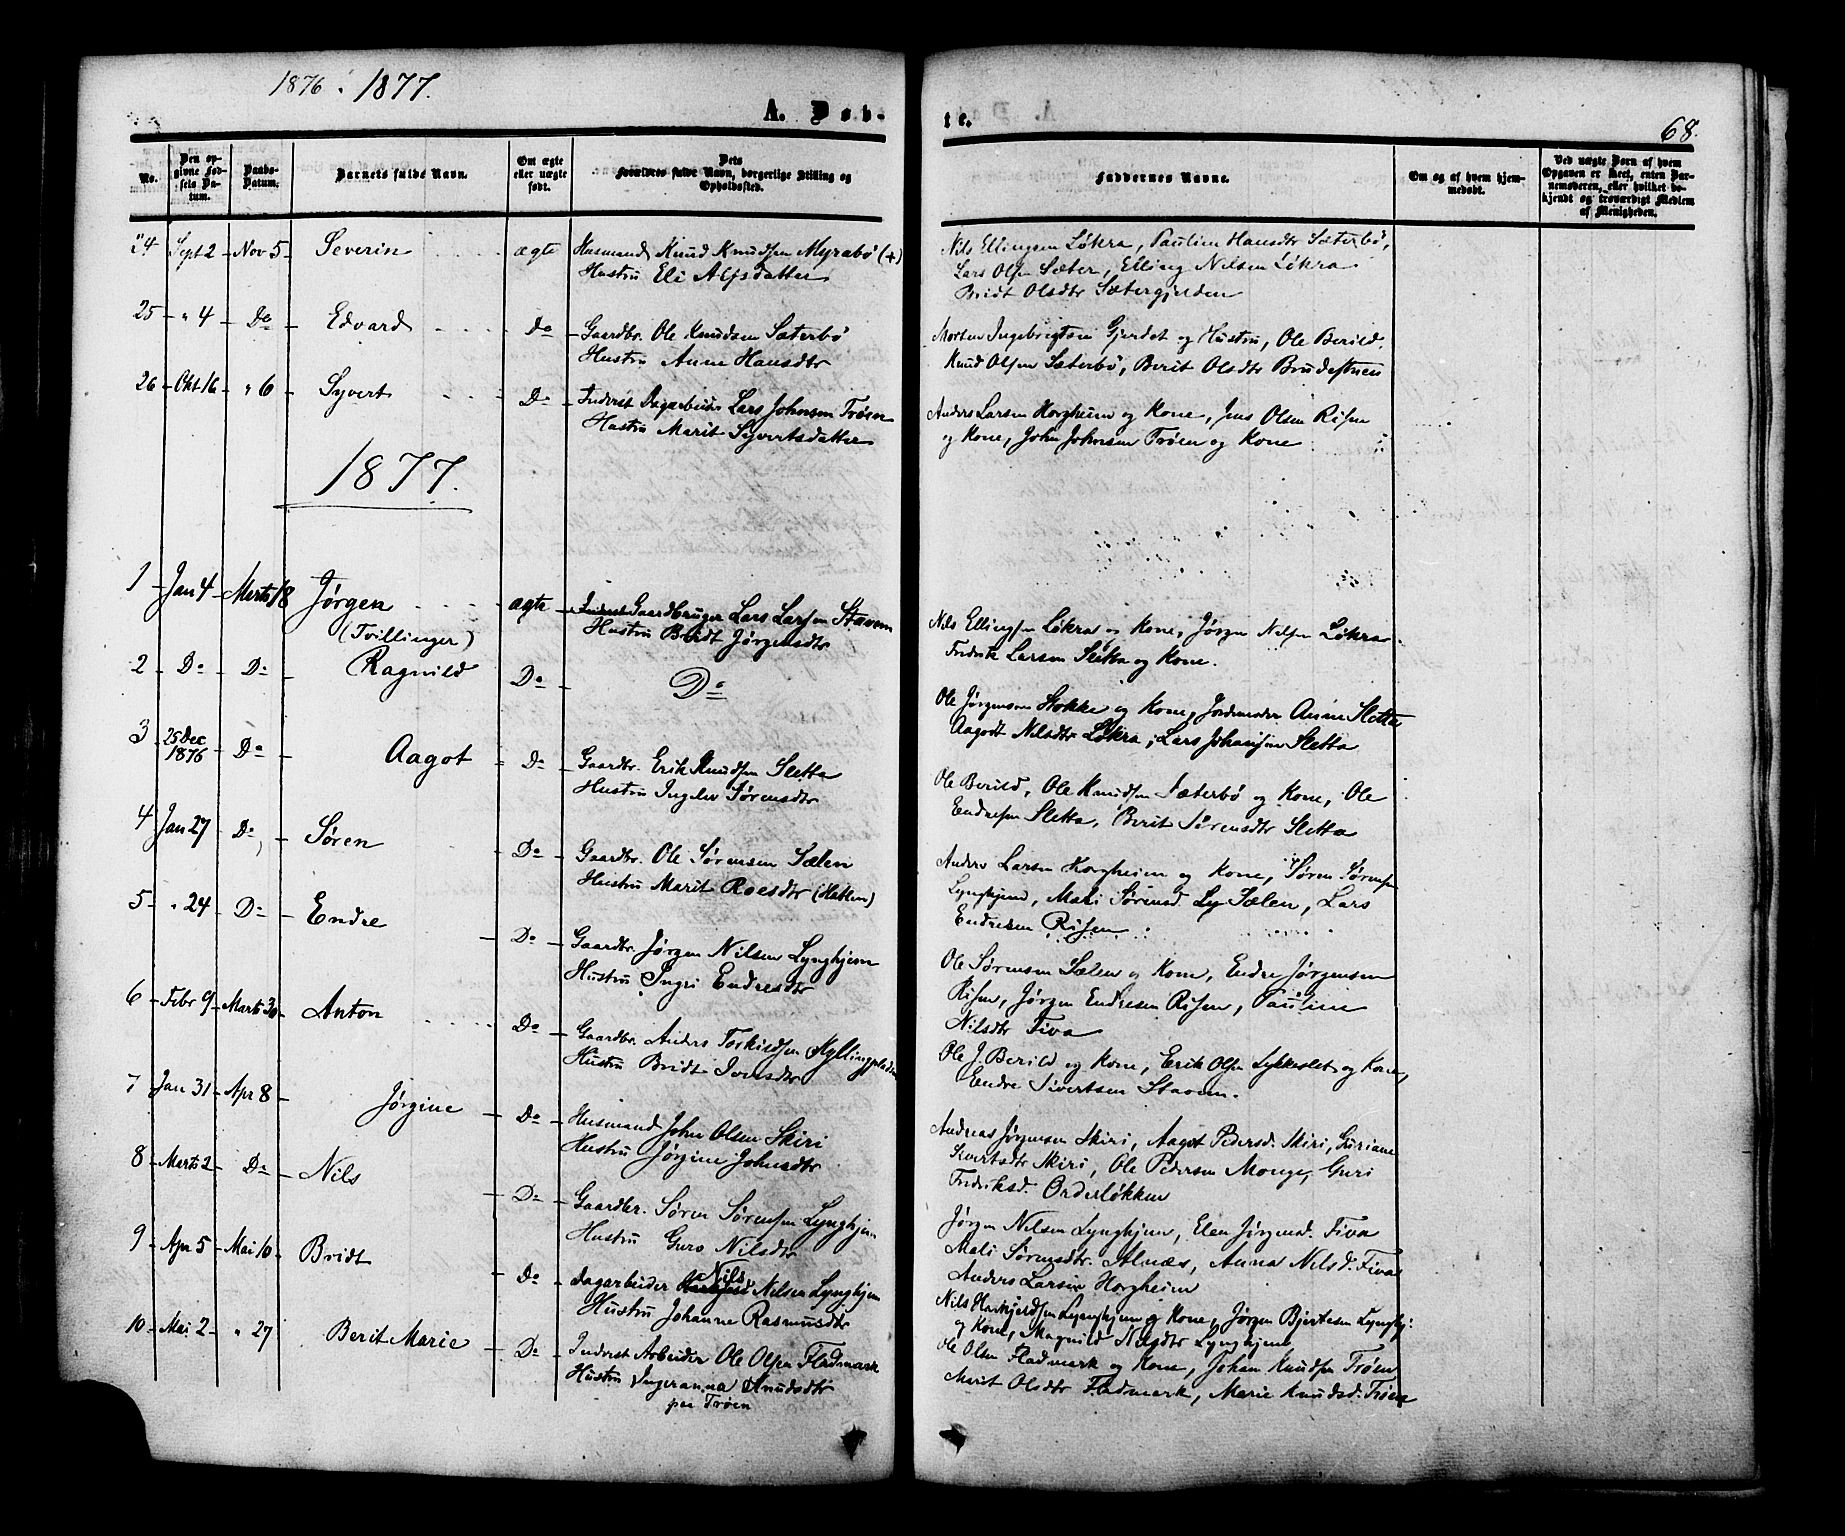 1876 . 1877.
A. Døb-
te.
68.
No.
Den opgivne Fødsels Datum.
Daabs-Datum.
Barnets fulde Navn.
Om ægte eller uægte født.
Dets Forældres fulde Navn, borgerlige Stilling og Opholdssted.
Faddernes Navne.
Om og af hvem hjemmedøbt.
Ved uægte Børn af hvem Opgaven er skeet, enten Barnemoderen, eller hvilket bekjendt og troværdigt Medlem af Menigheden.
24 Sept 2 Nov 5 Severin ægte Husmand Knud Knudsen Myrabø (+)
Hustru Eli Alfsdatter
Nils Ellingsen Løkra, Pauline Hansdtr Sæterbø,
Lars Olsen Sæter, Elling Nilsen Løkra
Bridt Olsdtr Sætergjerden
25 " 4 Do Edvard Do Gaardbr. Ole Knudsen Sæterbø
Hustru Anne Hansdtr
Morten Ingebrigtsen Gjerdet og Hustru, Ole Berild.
Knud Olsen Sæterbø, Berit Olsdtr Brudestuen
26 Okt 16 " 6 Syvert Do Inderst Dagarbeider Lars Johnsen Trøen
Hustru Marit Syvertsdatter
Anders Larsen Horgheim og Kone, Jens Olsen Risen
og Kone, John Johnsen Trøen og Kone
1877.
1 Jan 4 Marts 18 Jørgen ægte Inderst Gaardbruger Lars Larsen Stavem
(Tvillinger)
Hustru Bridt Jørgensdtr
Nils Ellingsen Løkra og Kone, Jørgen Nilsen Løkra
Fredrik Larsen Sletta og Kone.
2 Do Do Ragnild Do Do
Ole Jørgensen Stokke og Kone, Jordmoder Anne Sletta
Aagodt Nilsdtr Løkra, Lars Johansen Sletta
3 25 Dec 1876 Do Aagot Do Gaardbr. Erik Knudsen Sletta
Hustru Ingelev Sørensdtr
Ole Berild, Ole Knudsen Sæterbø og Kone, Ole
Endresen Sletta, Berit Sørensdtr Sletta
4 Jan 27 Do Søren Do Gaardbr. Ole Sørensen Sælen
Hustru Marit Roesdtr (Hatlem)
Anders Larsen Horgheim og Kone, Søren Sørensen
Lynghjem, Mali Sørensd. Ly Sælen, Lars
Endresen Risen
5 " 24 Do Endre Do Gaardbr. Jørgen Nilsen Lynghjem
Hustru Ingri Endresdtr
Ole Sørensen Sælen og Kone, Endre Jørgensen
Risen, Jørgen Endresen Risen, Pauline
Nilsdtr Fiva
6 Febr 9 Marts 30 Anton Do Gaardbr. Anders Torkildsen Kyllingpladsen
Hustru Bridt Iversdtr
Ole J. Berild og Kone, Erik Olsen Lykkeslet og Kone,
Endre Sivertsen Stavem.
7 Jan 31 Apr 8 Jørgine Do Husmand John Olsen Skiri
Hustru Jørgine Johnsdtr
Andreas Jørgensen Skiri, Aagot Pedersd. Skiri, Guriane
Sivertsdtr Skiri, Ole Pedersen Monge, Guri
Fredriksd. Orderløkken
8 Marts 2 Do Nils Do Gaardbr. Søren Sørensen Lynghjem
Hustru Guro Nilsdtr
Jørgen Nilsen Lynghjem, Elen Jørgensd. Fiva
Mali Sørensdtr. Alnæs, Anna Nilsd. Fiva
Anders Larsen Horgheim
9 Apr 5 Mai 10 Bridt Do Dagarbeider Nils Nilsen Lynghjem
Hustru Johanne Rasmusdtr
Nils Herkjeldsen Lynghjem og Kone, Jørgen Bjertesen Lynghj:
og Kone, Magnild Nilsdtr Lynghjem
10 Mai 2 " 27 Berit Marie Do Inderst Arbeider Ole Olsen Fladmark
Hustru Ingeranna Knudsdtr
paa Trøen
Ole Olsen Fladmark og Kone, Johan Knudsen Trøen
Marit Olsdtr Fladmark, Marie Knudsd. Trøen